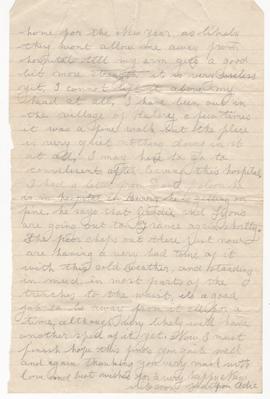 home for the New Year, as likely
they wont allow me away from
hospital till my arm gets a good
bit more strength it is very useless
yet, I cannot lift it above my
head at all, I have been out in
the village of a few times
it was a fine walk but the place
is very quiet nothing doing in it
at all, I may have to go to
convalescent after leaving this hospital
I had a letter from
in hospital in he is getting on
fine, he says that and Lyons
are going out to France again shortly
The poor chaps out there just now
are having a very bad time of it
with this cold weather, and standing
in mud in most parts of the
trenches to the waist, its a good
to be away from it all for a
time, although very likely will have
another spell of it yet. Now I must
finish hope this finds you quite well
and again thanking you very much with
love and best wishes for a very happy New